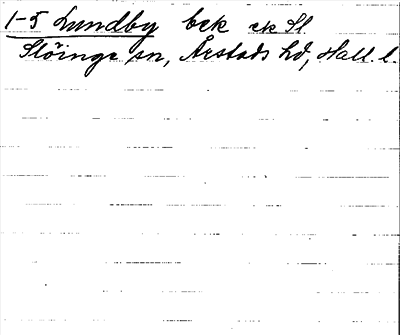 1-5 Lundby bek ek Sl.
Slöinge sn, Årstads hd, Hall. l.